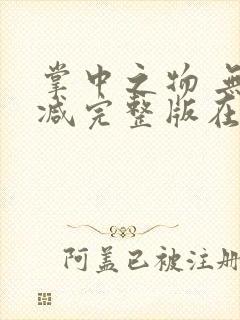 掌中之物 無
减完整版在
阿盖已被注册